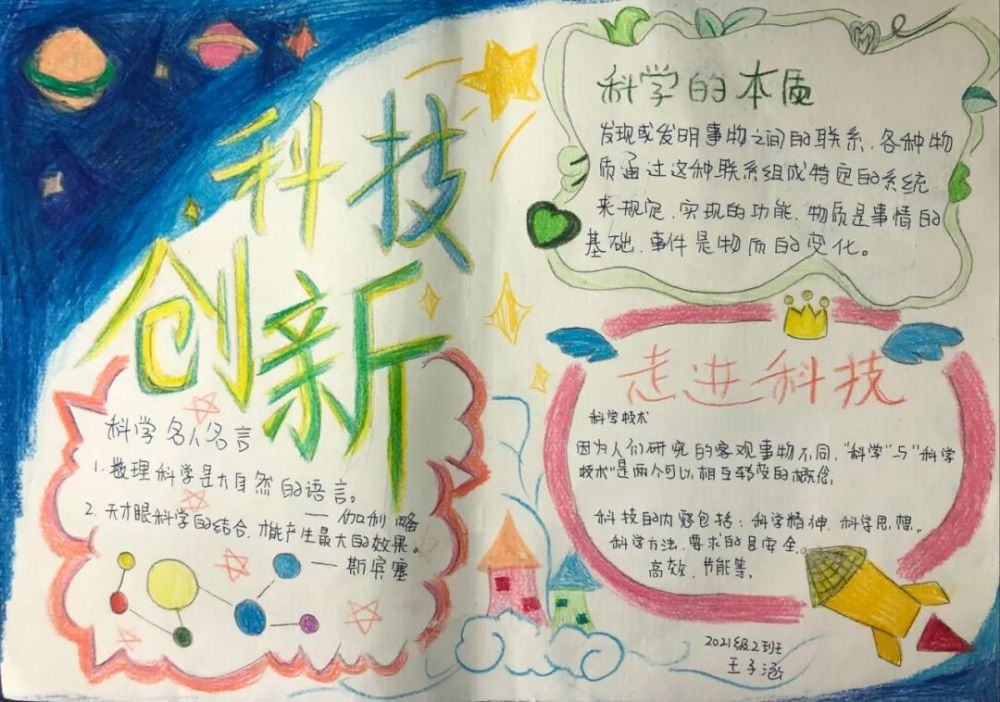 科技
创新
科学的本质
发现或发明事物之间的联系.各种物
质通过这种联系组成特定的系统
来规定.实现的功能.物质是事情的
基础.事件是物质的变化。
科学名人名言
1.数理科学是大自然的语言。
——伽利略
2.天才眼科学的结合.才能产生最大的效果。
——斯宾塞
走进科技
科学技术
因为人们研究的客观事物不同,"科学"与"科学
技术"是两个可以相互转变的概念.
科技的内容包括:科学精神.科学思想.
科学方法.要求的是安全.
高效.节能等.
2021级2班
王子涵